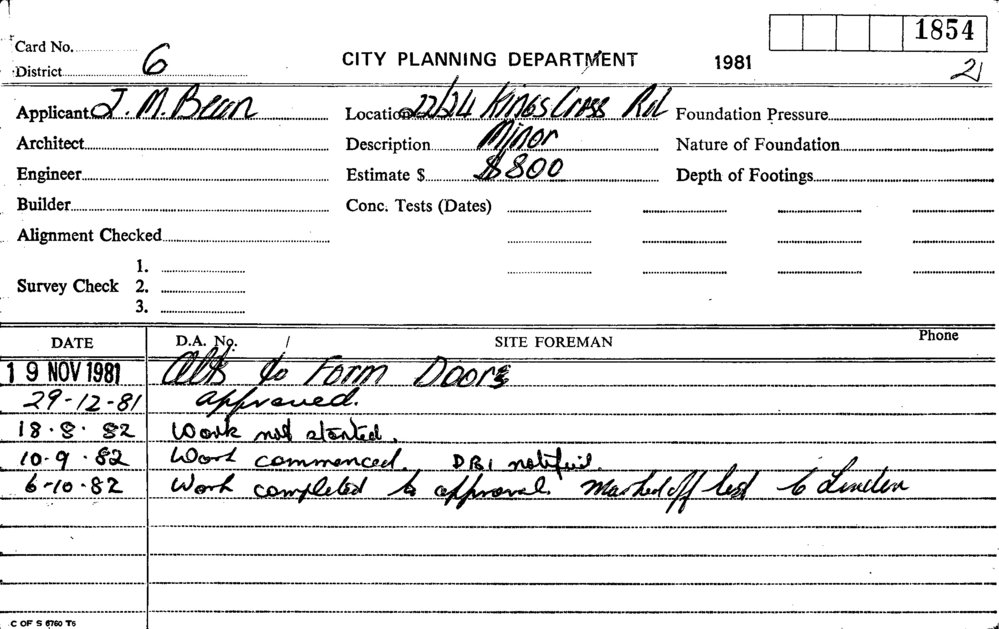 1854
Card No.
District 6
CITY PLANNING DEPARTMENT 1981
21
Applicant J. M. Bean Location 22/24 Kings Cross Rd Foundation Pressure
Architect Description Minor Nature of Foundation
Engineer Estimate $ $800 Depth of Footings
Builder Conc. Tests (Dates)
Alignment Checked
1.
Survey Check 2.
3.
DATE D.A. No. SITE FOREMAN Phone
19 NOV 1981 Alts to Form Doors
29-12-81 approved.
18.8.82 Work not started.
10.9.82 Work commenced. DBI notified.
6-10.82 Work completed to approval. Marked off to
C OF S 6760 T6